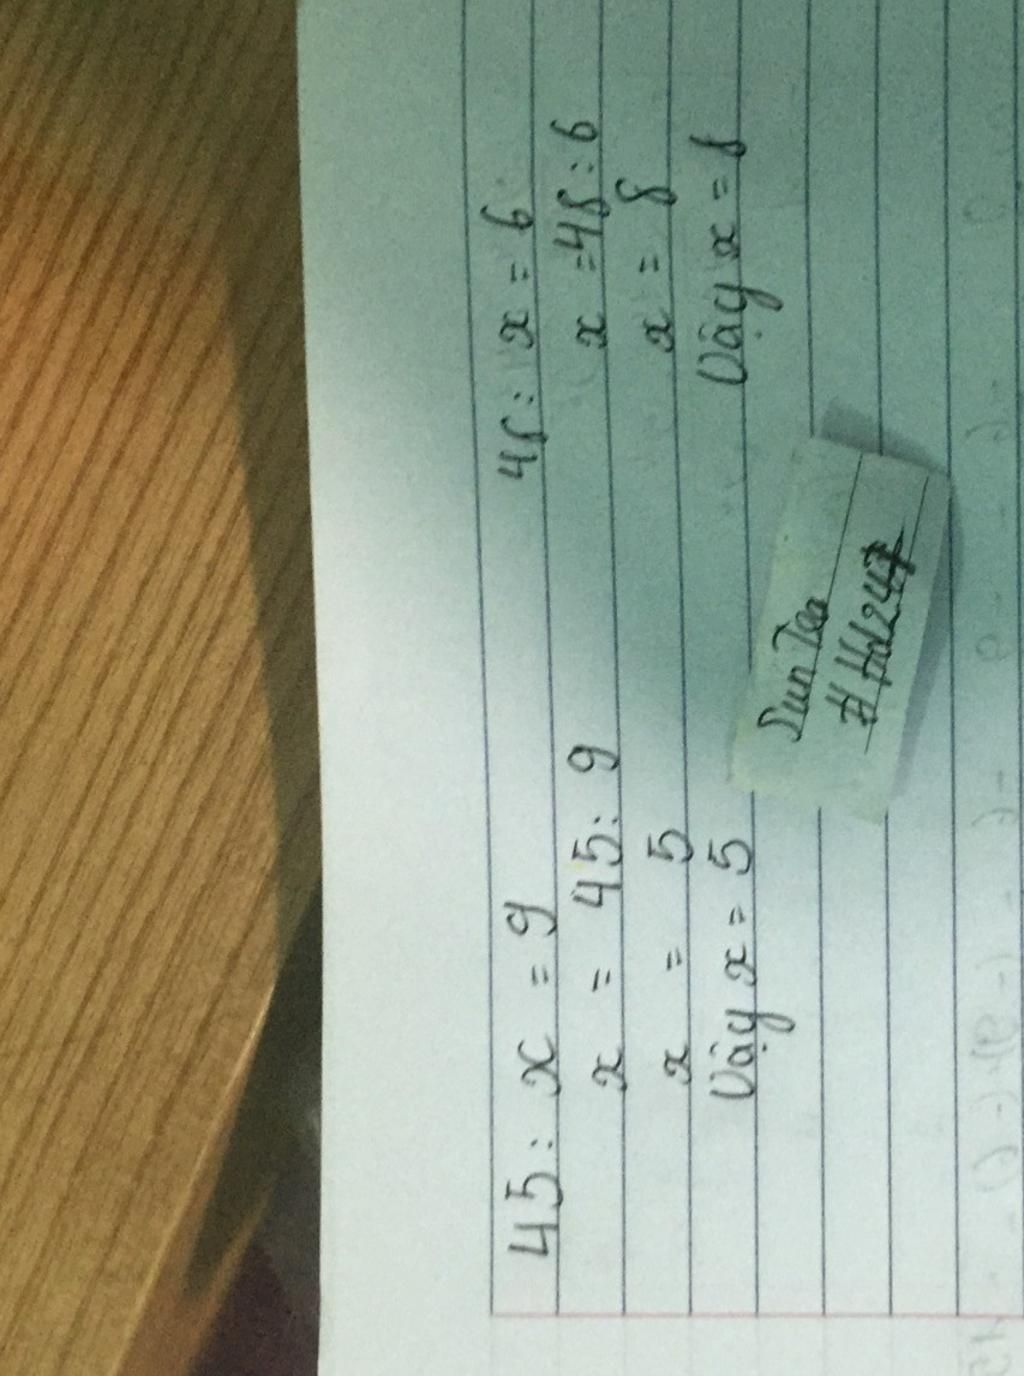 45 : x = 9
x = 45 : 9
x = 5
Vậy x = 5
48 : x = 6
x = 48 : 6
x = 8
Vậy x = 8
Sun Tea